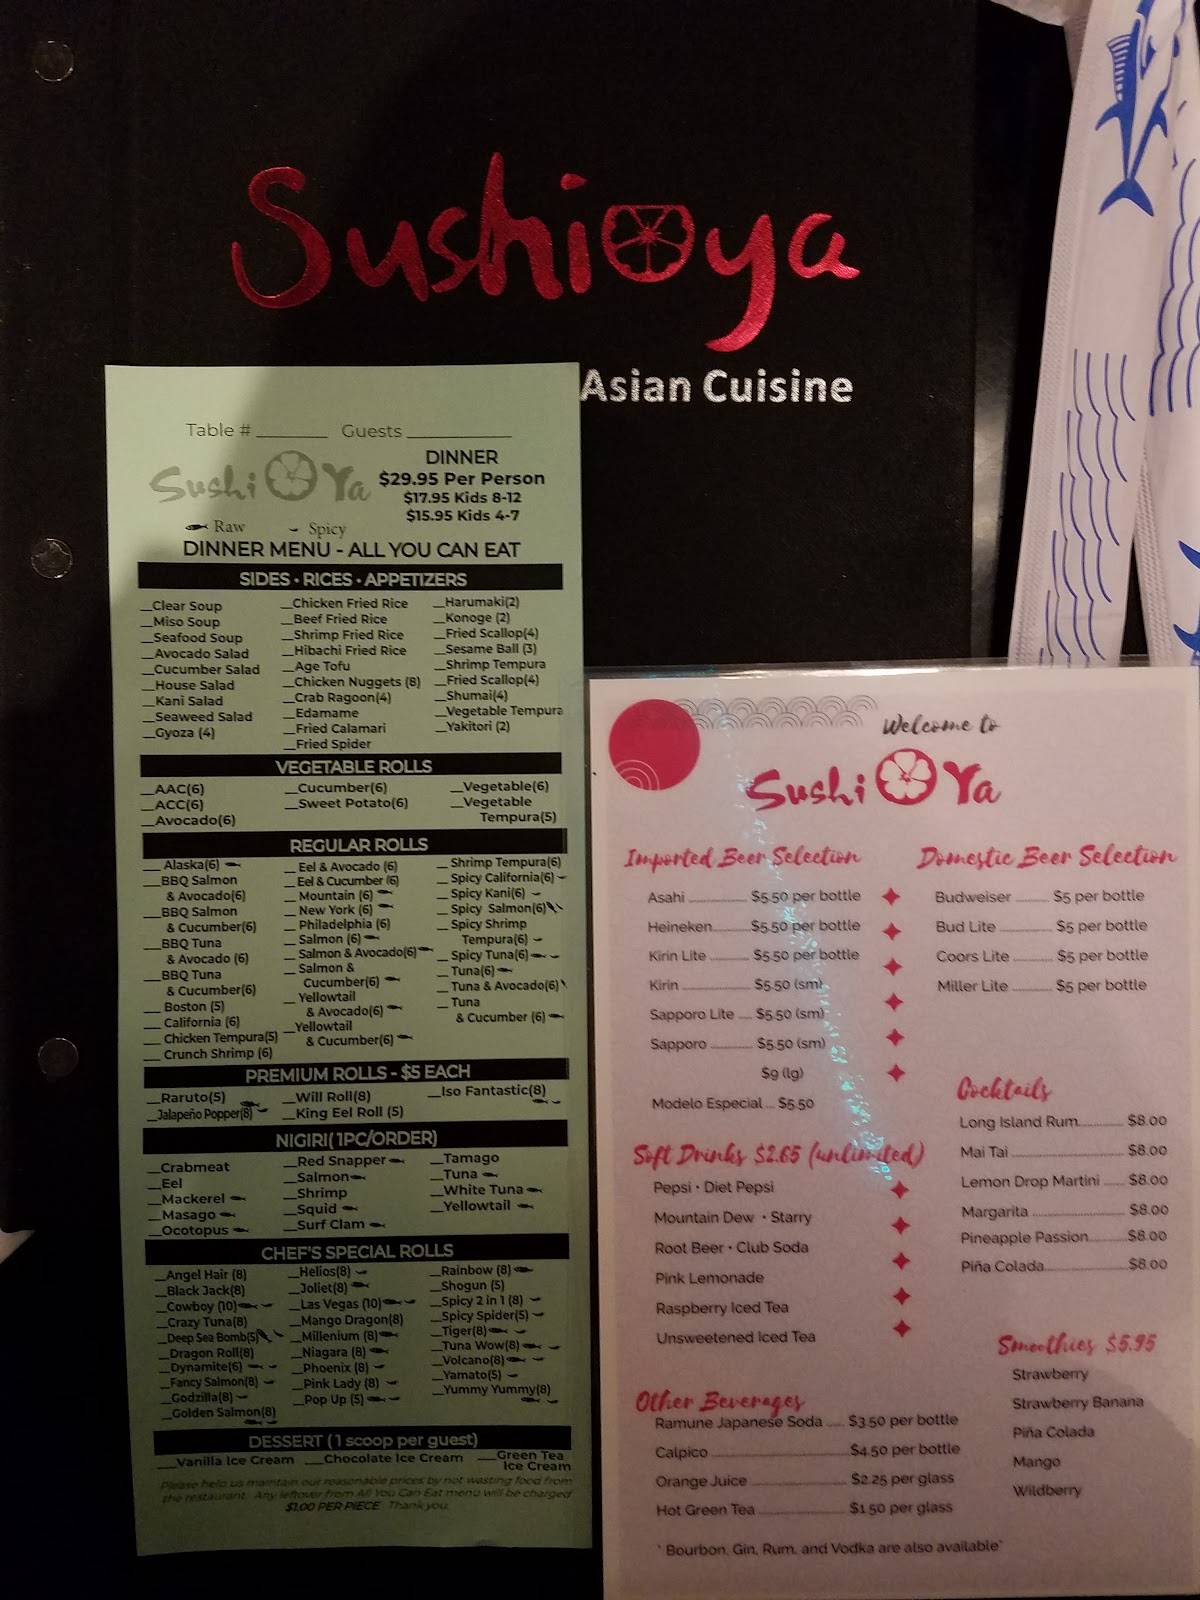 Sushi ya
Asian Cuisine
Table # ______ Guests ______
Sushi Ya
DINNER
$29.95 Per Person
$17.95 Kids 8-12
$15.95 Kids 4-7
Raw Spicy
DINNER MENU - ALL YOU CAN EAT
SIDES • RICES • APPETIZERS
__Clear Soup
__Miso Soup
__Seafood Soup
__Avocado Salad
__Cucumber Salad
__House Salad
__Kani Salad
__Seaweed Salad
__Gyoza (4)
__Chicken Fried Rice
__Beef Fried Rice
__Shrimp Fried Rice
__Hibachi Fried Rice
__Age Tofu
__Chicken Nuggets (8)
__Crab Ragoon(4)
__Edamame
__Fried Calamari
__Fried Spider
__Harumaki(2)
__Konoge (2)
__Fried Scallop(4)
__Sesame Ball (3)
__Shrimp Tempura
__Fried Scallop(4)
__Shumai(4)
__Vegetable Tempura
__Yakitori (2)
VEGETABLE ROLLS
__AAC(6)
__ACC(6)
__Avocado(6)
__Cucumber(6)
__Sweet Potato(6)
__Vegetable(6)
__Vegetable
Tempura(5)
REGULAR ROLLS
__Alaska(6)
__BBQ Salmon
& Avocado(6)
__BBQ Salmon
& Cucumber(6)
__BBQ Tuna
& Avocado (6)
__BBQ Tuna
& Cucumber(6)
__Boston (5)
__California (6)
__Chicken Tempura(5)
__Crunch Shrimp (6)
__Eel & Avocado (6)
__Eel & Cucumber (6)
__Mountain (6)
__New York (6)
__Philadelphia (6)
__Salmon (6)
__Salmon & Avocado(6)
__Salmon &
Cucumber(6)
__Yellowtail
& Avocado(6)
__Yellowtail
& Cucumber(6)
__Shrimp Tempura(6)
__Spicy California(6)
__Spicy Kani(6)
__Spicy Salmon(6)
__Spicy Shrimp
Tempura(6)
__Spicy Tuna(6)
__Tuna(6)
__Tuna & Avocado(6)
__Tuna
& Cucumber (6)
PREMIUM ROLLS - $5 EACH
__Raruto(5)
__Jalapeño Popper(8)
__Will Roll(8)
__King Eel Roll (5)
__Iso Fantastic(8)
NIGIRI( 1PC/ORDER)
__Crabmeat
__Eel
__Mackerel
__Masago
__Ocotopus
__Red Snapper
__Salmon
__Shrimp
__Squid
__Surf Clam
__Tamago
__Tuna
__White Tuna
__Yellowtail
CHEF'S SPECIAL ROLLS
__Angel Hair (8)
__Black Jack(8)
__Cowboy (10)
__Crazy Tuna(8)
__Deep Sea Bomb(5)
__Dragon Roll(8)
__Dynamite(6)
__Fancy Salmon(8)
__Godzilla(8)
__Golden Salmon(8)
__Helios(8)
__Joliet(8)
__Las Vegas (10)
__Mango Dragon(8)
__Millenium (8)
__Niagara (8)
__Phoenix (8)
__Pink Lady (8)
__Pop Up (5)
__Rainbow (8)
__Shogun (5)
__Spicy 2 in 1 (8)
__Spicy Spider(5)
__Tiger(8)
__Tuna Wow(8)
__Volcano(8)
__Yamato(5)
__Yummy Yummy(8)
DESSERT ( 1 scoop per guest)
__Vanilla Ice Cream __Chocolate Ice Cream __Green Tea
Ice Cream
Please help us maintain our reasonable prices by not wasting food from
the restaurant. Any leftover from All You Can Eat menu will be charged
$1.00 PER PIECE Thank you.
Welcome to
Sushi Ya
Imported Beer Selection
Asahi ........ $5.50 per bottle
Heineken........ $5.50 per bottle
Kirin Lite ........ $5.50 per bottle
Kirin ........ $5.50 (sm)
Sapporo Lite .... $5.50 (sm)
Sapporo ........ $5.50 (sm)
$9 (lg)
Modelo Especial ... $5.50
Soft Drinks $2.65 (unlimited)
Pepsi • Diet Pepsi
Mountain Dew • Starry
Root Beer • Club Soda
Pink Lemonade
Raspberry Iced Tea
Unsweetened Iced Tea
Other Beverages
Ramune Japanese Soda .... $3.50 per bottle
Calpico ........ $4.50 per bottle
Orange Juice ........ $2.25 per glass
Hot Green Tea ........ $1.50 per glass
Domestic Beer Selection
Budweiser ........ $5 per bottle
Bud Lite ........ $5 per bottle
Coors Lite ........ $5 per bottle
Miller Lite ........ $5 per bottle
Cocktails
Long Island Rum........ $8.00
Mai Tai ........ $8.00
Lemon Drop Martini ..... $8.00
Margarita ........ $8.00
Pineapple Passion........ $8.00
Piña Colada........ $8.00
Smoothies $5.95
Strawberry
Strawberry Banana
Piña Colada
Mango
Wildberry
* Bourbon, Gin, Rum, and Vodka are also available*